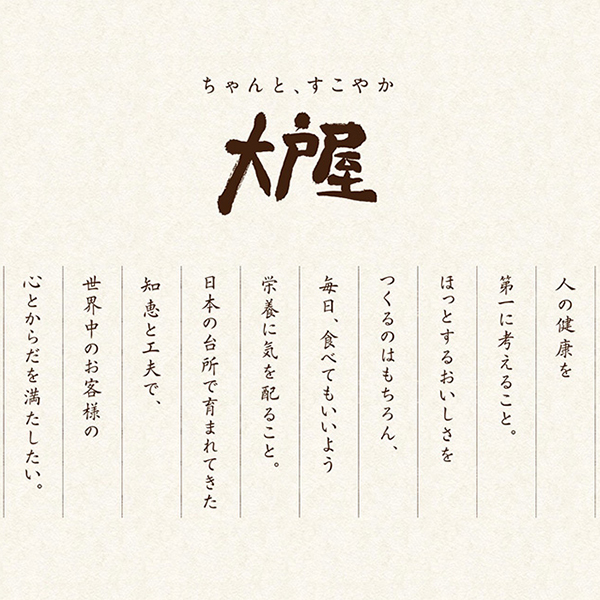 ちゃんと、すこやか
大戸屋
人の健康を
第一に考えること。
ほっとするおいしさを
つくるのはもちろん、
毎日、食べてもいいよう
栄養に気を配ること。
日本の台所で育まれてきた
知恵と工夫で、
世界中のお客様の
心とからだを満たしたい。